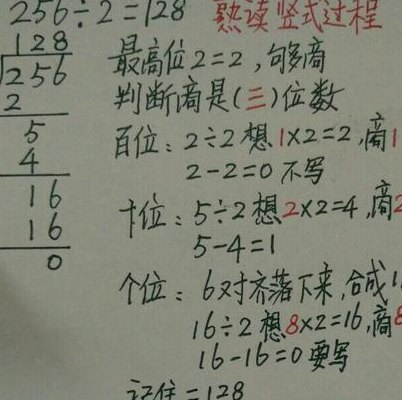 256÷2=128 熟读竖式过程
128
256
2
5
4
16
16
0
最高位2=2,够商
判断商是(三)位数
百位:2÷2想1×2=2,商1
2-2=0不写
十位:5÷2想2×2=4,商2
5-4=1
个位:6对齐落下来,合成1
16÷2想8×2=16,商8
16-16=0要写
记住=128